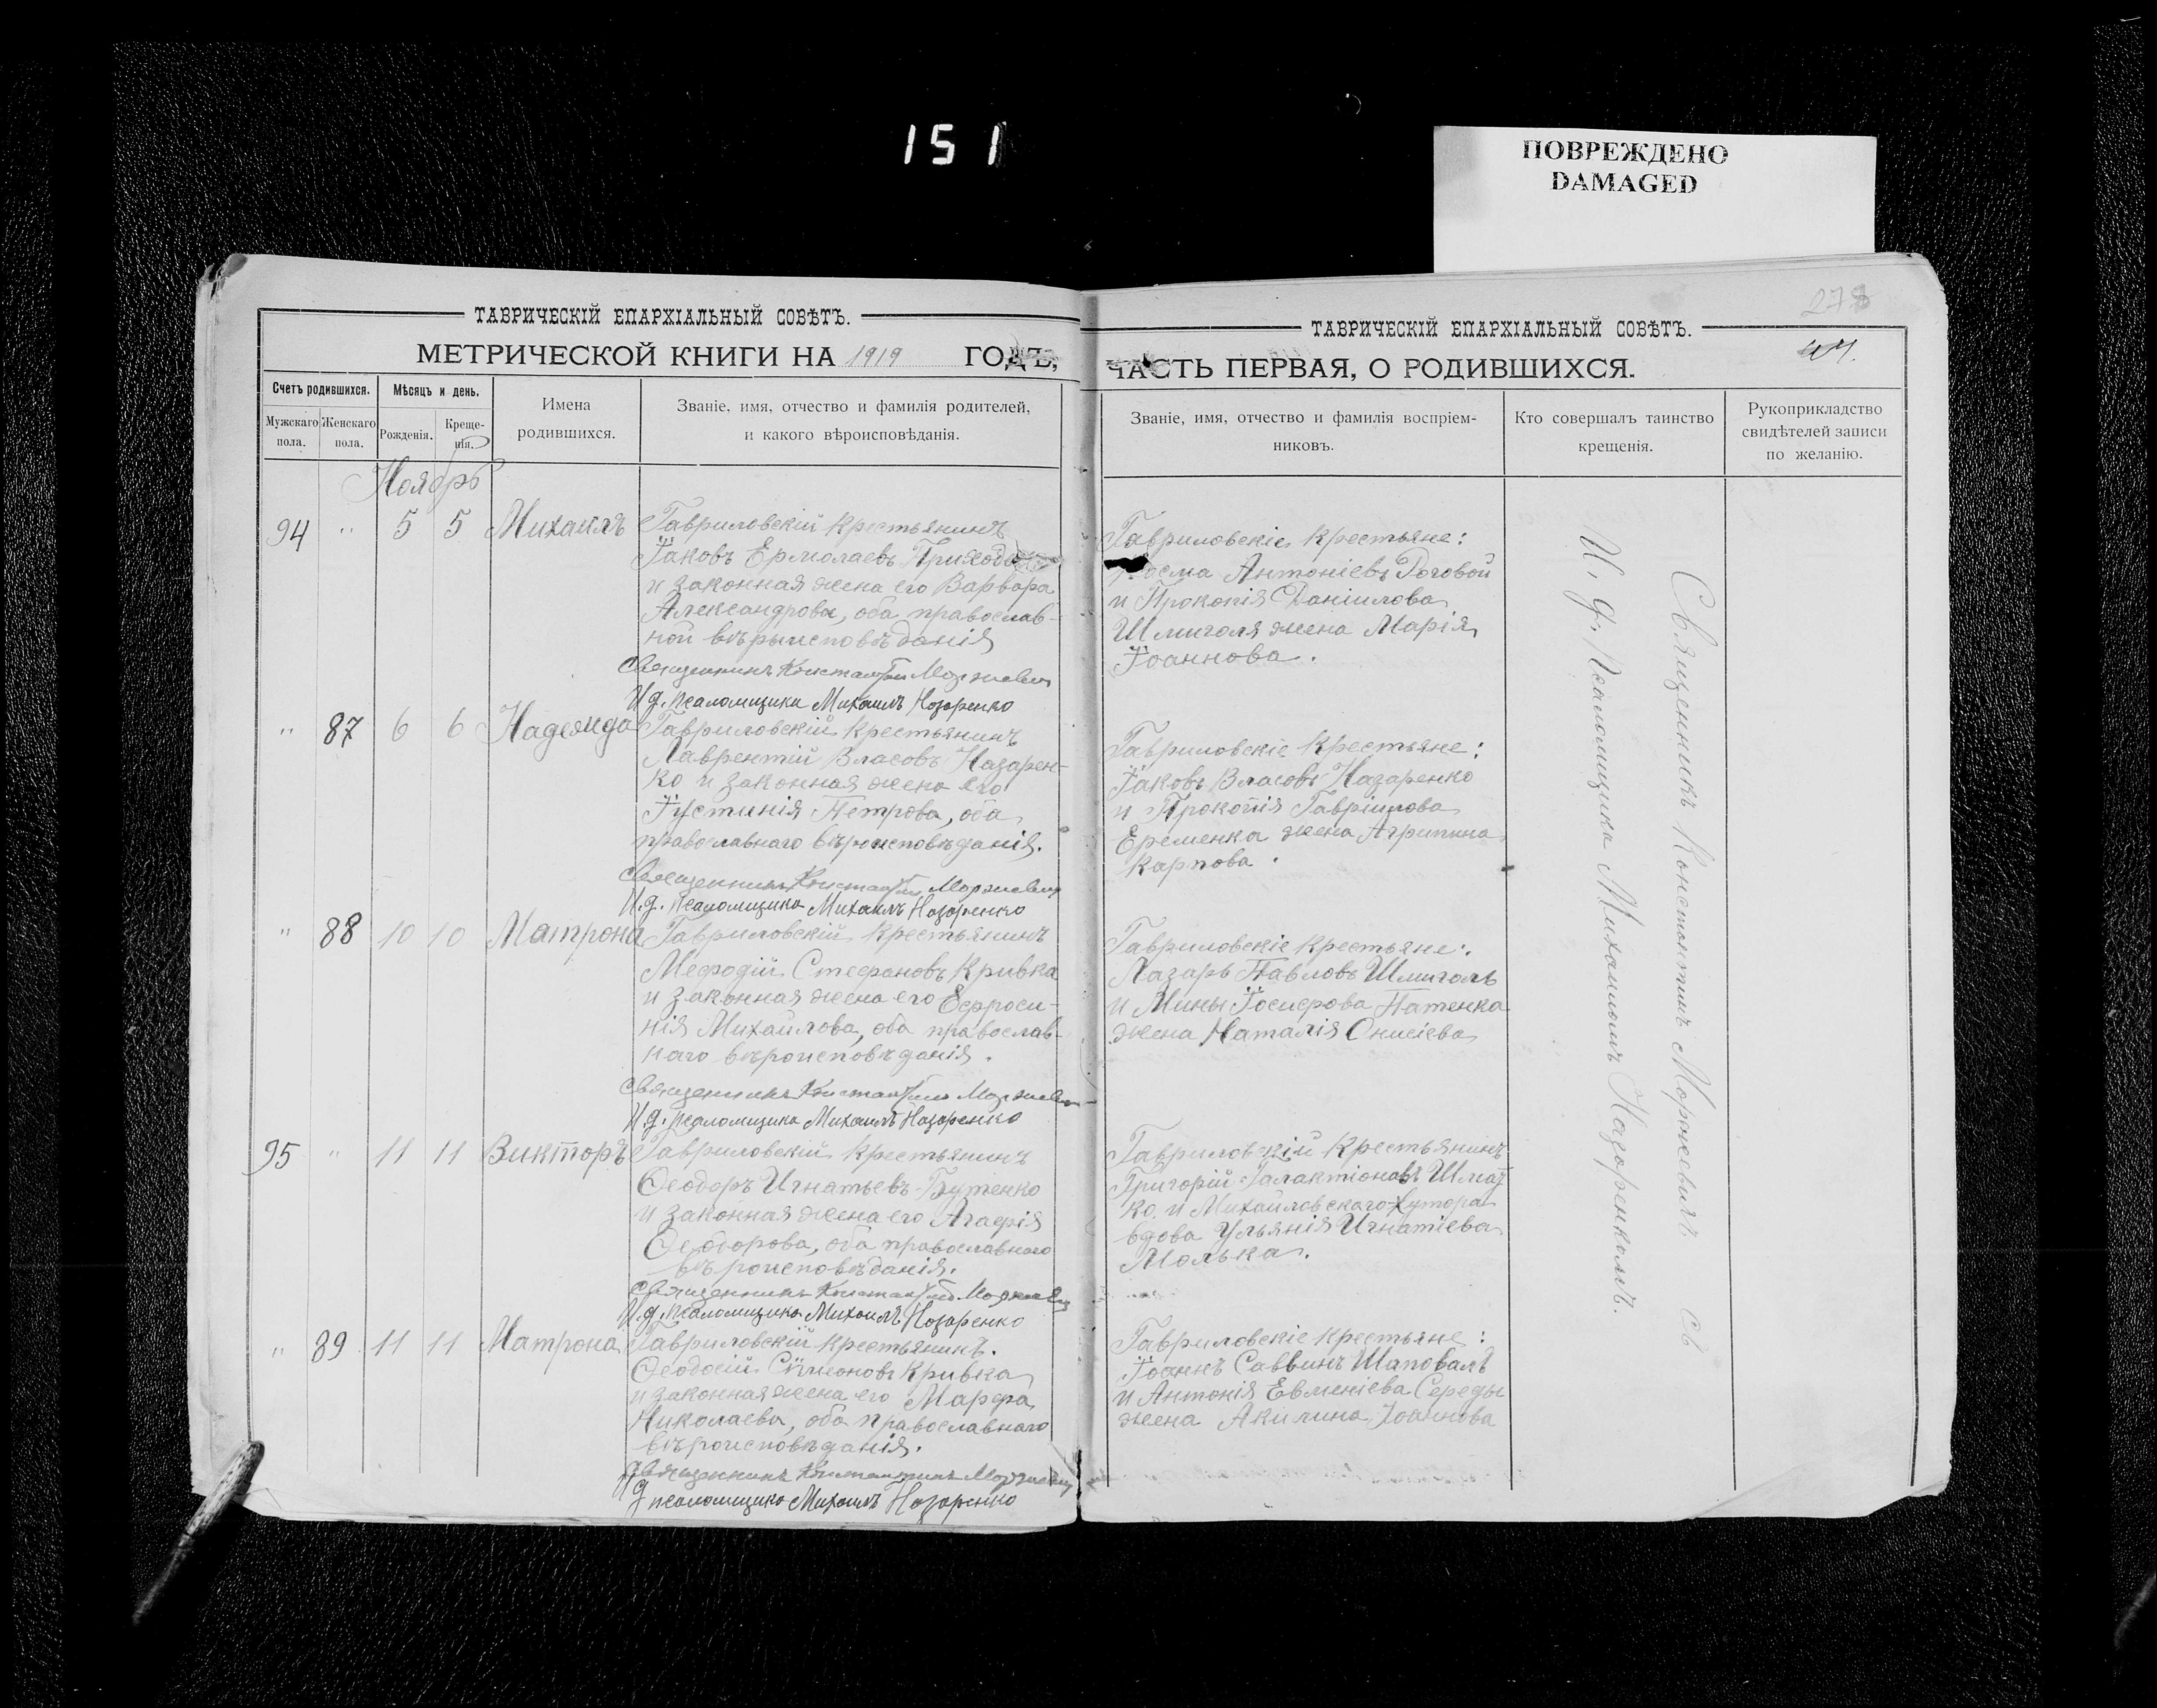 151
ПОВРЕЖДЕНО
DAMAGED
ТАВРИЧЕСКІЙ ЕПАРХІАЛЬНЫЙ СОВѢТЪ.
МЕТРИЧЕСКОЙ КНИГИ НА 1919 ГОДЪ,
Счетъ родившихся.
Мужскаго пола.
Женскаго пола.
Мѣсяцъ и день.
Рожденія.
Креще-
нія.
Имена
родившихся.
Званіе, имя, отчество и фамилія родителей,
и какого вѣроисповѣданія.
Ноябрь
94 " 5 5 Михаилъ
Гавриловскій крестьянинъ
Іаковъ Ермолаевъ
и законная жена его Варвара
Александрова, оба православ-
ной вѣрыисповѣданія
Священникъ Константинъ Моржевичъ
И.д. псаломщика Михаилъ Назаренко
" 87 6 6 Надежда
Гавриловскій крестьянинъ
Лаврентій Власовъ Назарен-
ко и законная жена его
Іустинія Петрова, оба
православнаго вѣроисповѣданія.
Священникъ Константинъ Моржевичъ
И.д. псаломщика Михаилъ Назаренко
" 88 10 10 Матрона
Гавриловскій крестьянинъ
Мефодій Стефановъ Кривка
и законная жена его Евфроси-
нія Михайлова, оба православ-
наго вѣроисповѣданія.
Священникъ Константинъ Моржевичъ
И.д. псаломщика Михаилъ Назаренко
95 " 11 11 Викторъ
Гавриловскій крестьянинъ
Ѳеодоръ Игнатьевъ Бутенко
и законная жена его Агафія
Ѳеодорова, оба православнаго
вѣроисповѣданія.
Священникъ Константинъ Моржевичъ
И.д. псаломщика Михаилъ Назаренко
" 89 11 11 Матрона
Гавриловскій крестьянинъ.
Ѳеодосій Сѵмеоновъ Кривка
и законная жена его Марфа
Николаева, оба православнаго
вѣроисповѣданія.
Священникъ Константинъ Моржевичъ
И д псаломщика Михаилъ Назаренко
ТАВРИЧЕСКІЙ ЕПАРХІАЛЬНЫЙ СОВѢТЪ.
ЧАСТЬ ПЕРВАЯ, О РОДИВШИХСЯ.
Званіе, имя, отчество и фамилія воспріем-
никовъ.
Кто совершалъ таинство
крещенія.
Рукоприкладство
свидѣтелей записи
по желанію.
Гавриловскіе крестьяне:
Антоніевъ Роговой
и Прокопія Даніилова
Шмиголя жена Марія
Іоаннова.
Гавриловскіе крестьяне:
Іаковъ Власовъ Назаренко
и Прокопія Гавріилова
Еременка жена Агрипина
Карпова.
Гавриловскіе крестьяне:
Лазарь Павловъ Шмиголь
и Мины Іосифова Патенка
жена Наталія Онисіева
Гавриловскій крестьянинъ
Григорій Галактіоновъ Шмат
ко и Михайловскаго хутора
вдова Ульянія Игнатіева
Молька.
Гавриловскіе крестьяне:
Іоаннъ Саввинъ Шаповалъ
и Антонія Евменіева Середы
жена Акилина Іоаннова
Священникъ Константинъ Моржевичъ съ
И. д. псаломщика Михаиломъ Назаренкомъ.